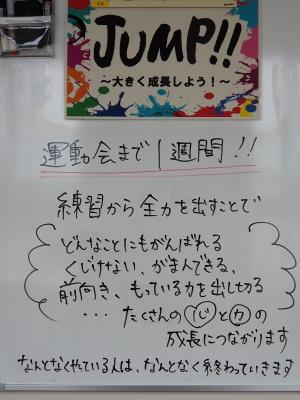 JUMP!!
～大きく成長しよう！～
運動会まで1週間!!
練習から全力を出すことで
どんなことにもがんばれる
くじけない、がまんできる、
前向き、もっている力を出し切る
・・・ たくさんの心と力の
成長につながります
なんとなくやっている人は、なんとなく終わっていきます